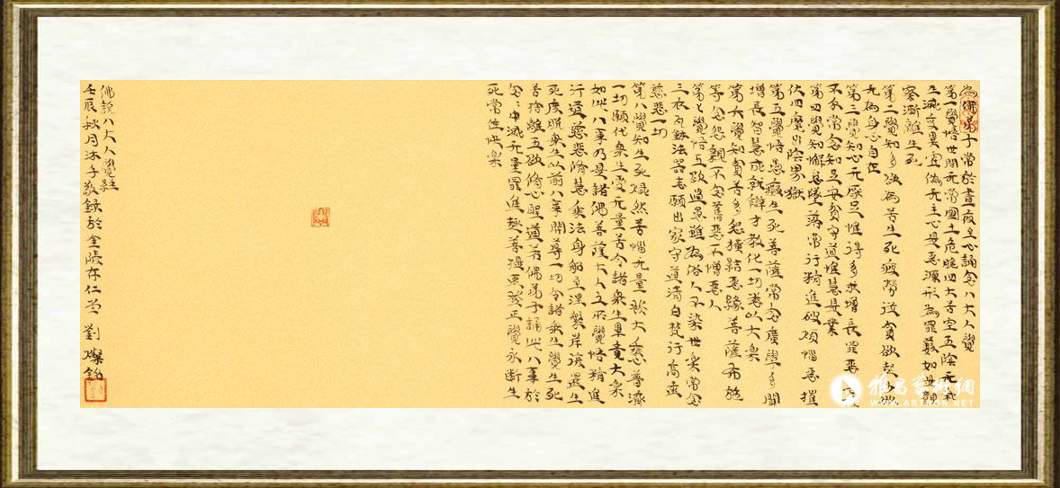 為佛弟子常於晝夜至心誦念八大人覺
第一覺悟世間无常國土危脆四大苦空五陰无我
生滅變異虛偽无主心是惡源形為罪藪如是觀
察漸離生死
第二覺知多欲為苦生死疲勞從貪欲起少欲
无為身心自在
第三覺知心无厭足惟得多求增長罪惡
不尒常念知足安貧守道惟慧是業
第四覺知懈怠墜落常行精進破煩惱惡摧
伏四魔出陰界獄
第五覺悟愚癡生死菩薩常念廣學多聞
增長智慧成就辯才教化一切悉以大樂
第六覺知貧苦多怨橫結惡緣菩薩布施
等念怨親不念舊惡不憎惡人
第七覺悟五欲過患雖為俗人不染世樂常念
三衣瓦鉢法器志願出家守道清白梵行高遠
慈悲一切
第八覺知生死熾然苦惱无量發大普濟
一切願代衆生受无量苦令諸衆生畢竟大樂
如此八事乃是諸佛菩薩大人之所覺悟精進
行道慈悲脩慧乘法身船至涅槃岸復還生
死度脫衆生以前八事開導一切令諸衆生覺生死
苦捨離五欲脩心聖道若佛弟子誦此八事於
念念中滅无量罪進趣菩提速登正覺永斷生
死常住快樂
佛說八大人覺經
壬辰秋月沐手敬錄於金陵存仁堂劉燦銘
雅昌藝術網
WWW.ARTRON.NET